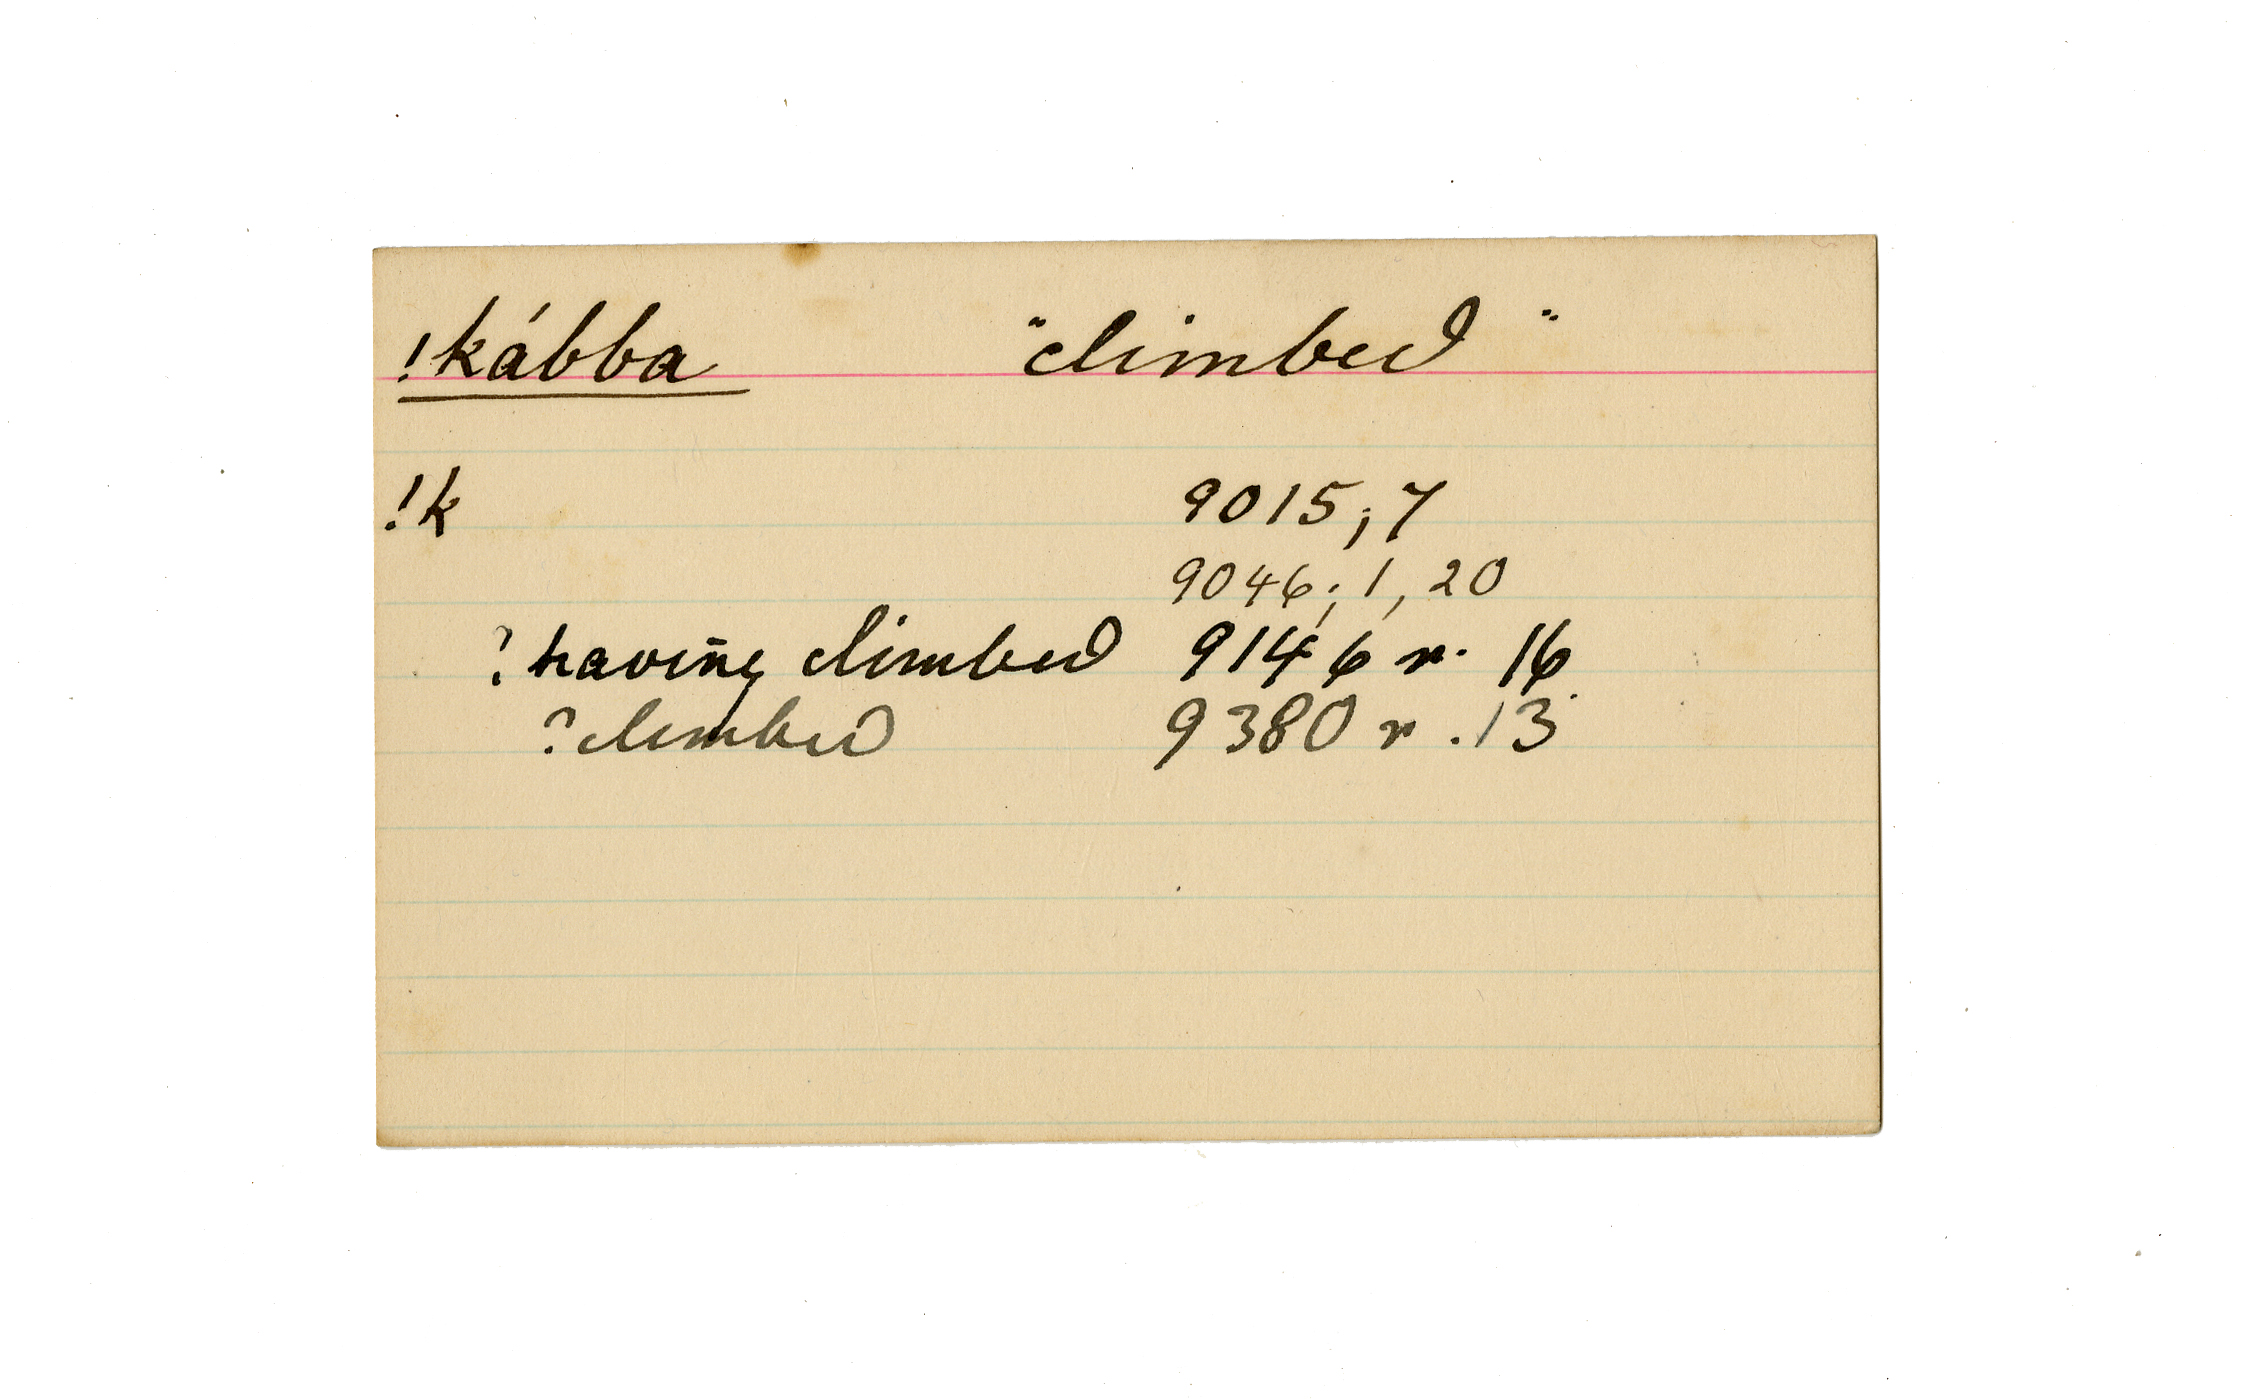 !kábba "climbed"
!k 9015; 7
9046; 1, 20
? having climbed 9146 r. 16
? climbed 9380 r. 13